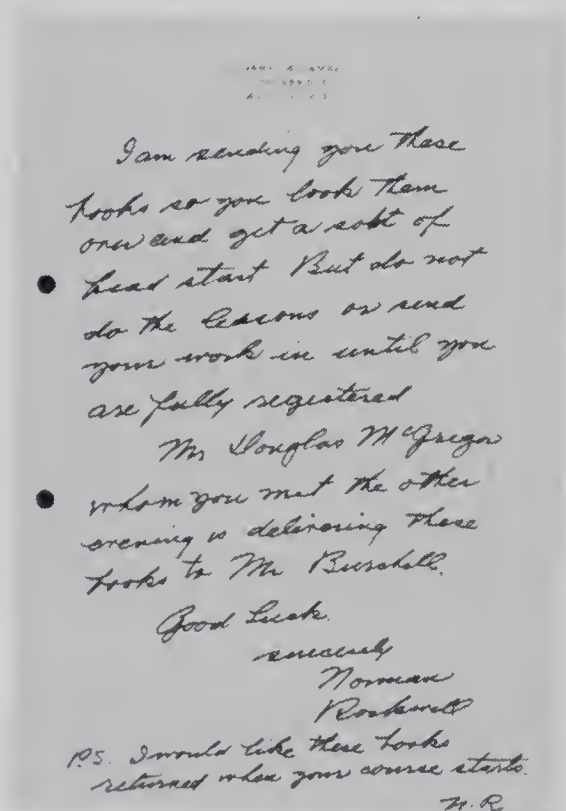 I am sending you these
books so you look them
over and get a sort of
head start But do not
do the lessons or send
your work in until you
are fully registered
Mr Douglas McGregor
whom you met the other
evening is delivering these
books to Mr Burchell.
Good Luck.
sincerely
Norman
Rockwell
P.S. I would like these books
returned when your course starts.
N.R